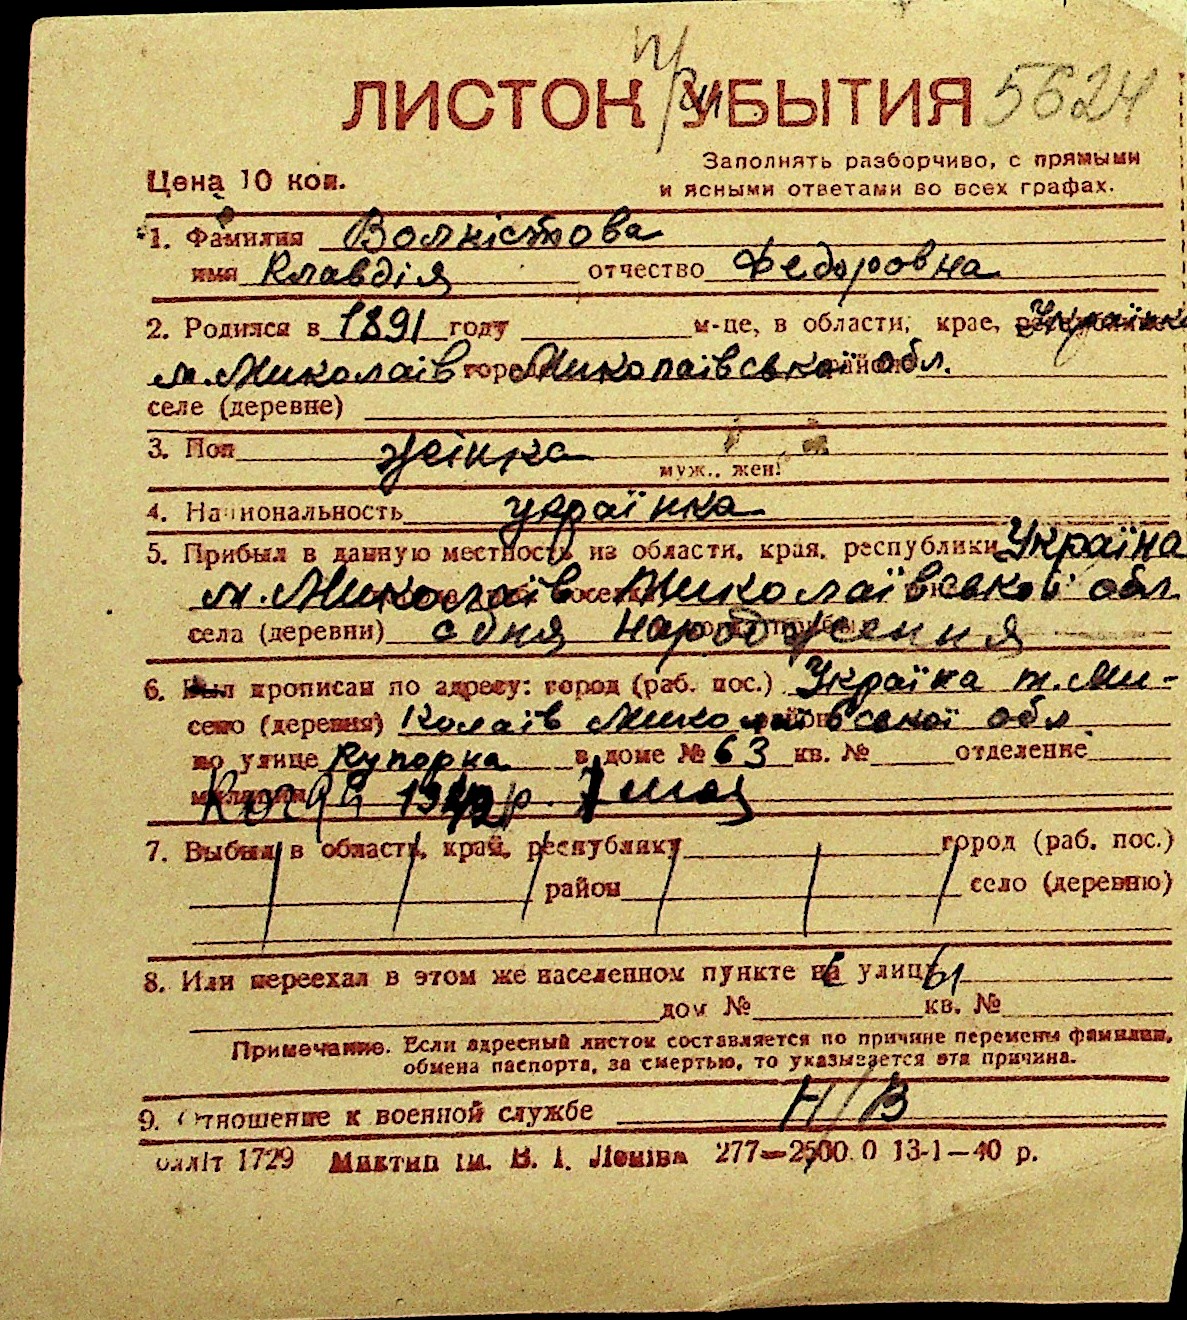 при
ЛИСТОК УБЫТИЯ 5624
Цена 10 коп.
Заполнять разборчиво, с прямыми
и ясными ответами во всех графах.
1. Фамилия Волкістова
имя Клавдія отчество Федоровна
2. Родился в 1891 году м-це, в области, крае, Україна
м. Миколаїв город Миколаївської обл.
селе (деревне)
3. Пол жінка
муж., жен.
4. Национальность українка
5. Прибыл в данную местность из области, края, республики Україна
м. Миколаїв Миколаївської обл
села (деревни) з дня народження
6. Был прописан по адресу: город (раб. пос.) Україна м. Ми-
село (деревня) колаїв Миколаївської обл
по улице Купорна в доме № 63 кв. № отделение
милиции 1942 р. 7 мая
7. Выбыл в область, край, республику город (раб. пос.)
район село (деревню)
8. Или переехал в этом же населенном пункте на улицу
дом № кв. №
Примечание. Если адресный листок составляется по причине перемены фамилии,
обмена паспорта, за смертью, то указывается эта причина.
9. Отношение к военной службе Н/В
1729 Миктип ім. В. І. Леніна 277—2500 0 13-1—40 р.